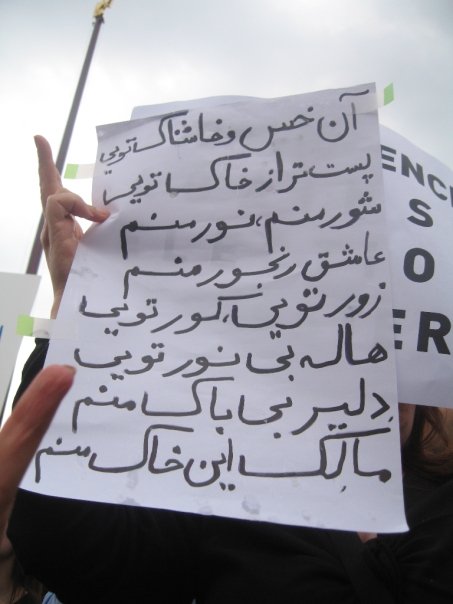 آن خس و خاشاک تویی
پست تر از خاک تویی
شور منم، نور منم
عاشق رنجور منم
زور تویی، کور تویی
هاله بی نور تویی
دلیر بی باک منم
مالک این خاک منم
ENC
S
O
ER